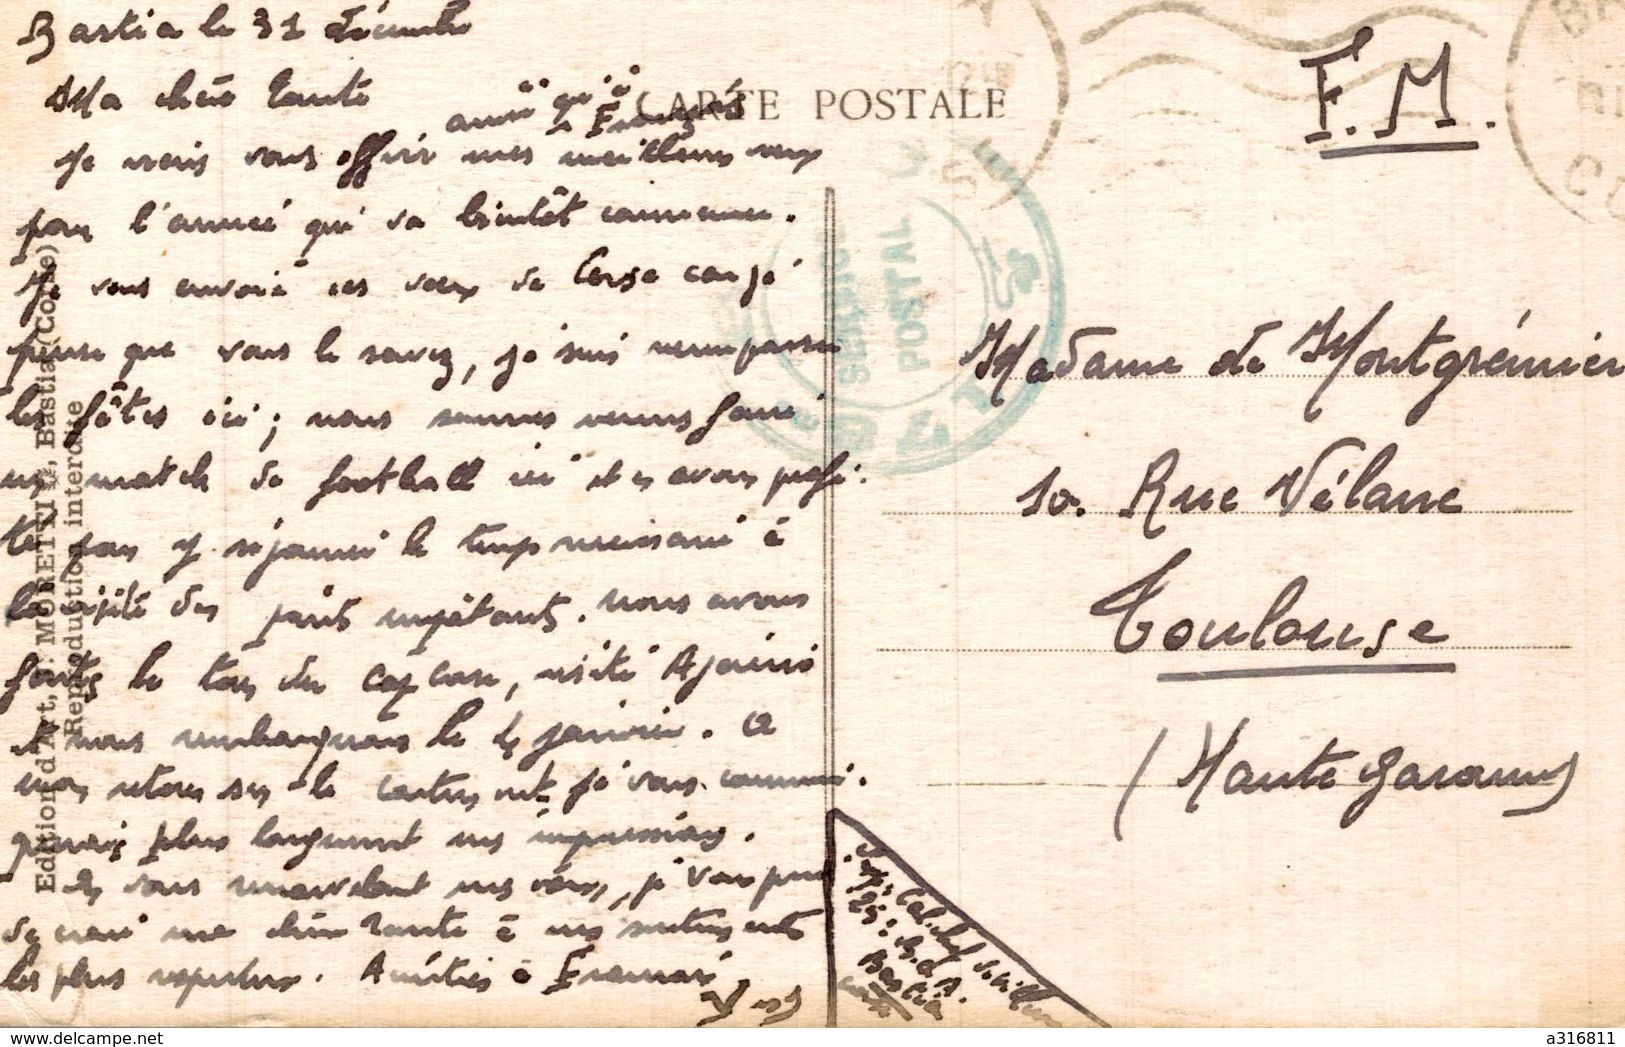 Bastia le 31 décembre
Ma chère Tante
ainsi qu'à
CARTE POSTALE
F.M.
Je viens vous offrir mes meilleurs vœux
pour l'année qui va bientôt commencer.
Je vous envoie ces vœux de Corse car je
pense que vous le savez, je suis venu passer
les fêtes ici ; nous sommes venus faire
un match de football ici et en avons profi-
té pour y séjourner le temps nécessaire à
la visite des points importants. Nous avons
fait le tour du cap corse, visité Ajaccio
et nous rembarquons le 4 janvier. A
mon retour sur le continent je vous communi-
querais plus longuement mes impressions.
En vous renouvelant mes vœux, je vous prie
de croire ma chère Tante à mes sentiments
les plus respectueux. Amitiés à
Yves
Madame de Montgrémier
10. Rue Vélane
Toulouse
(Haute Garonne)
Bastia
SERVICE
POSTAL
Edition d'Art, J. MORETTI, Bastia (Corse)
Reproduction interdite
a316811